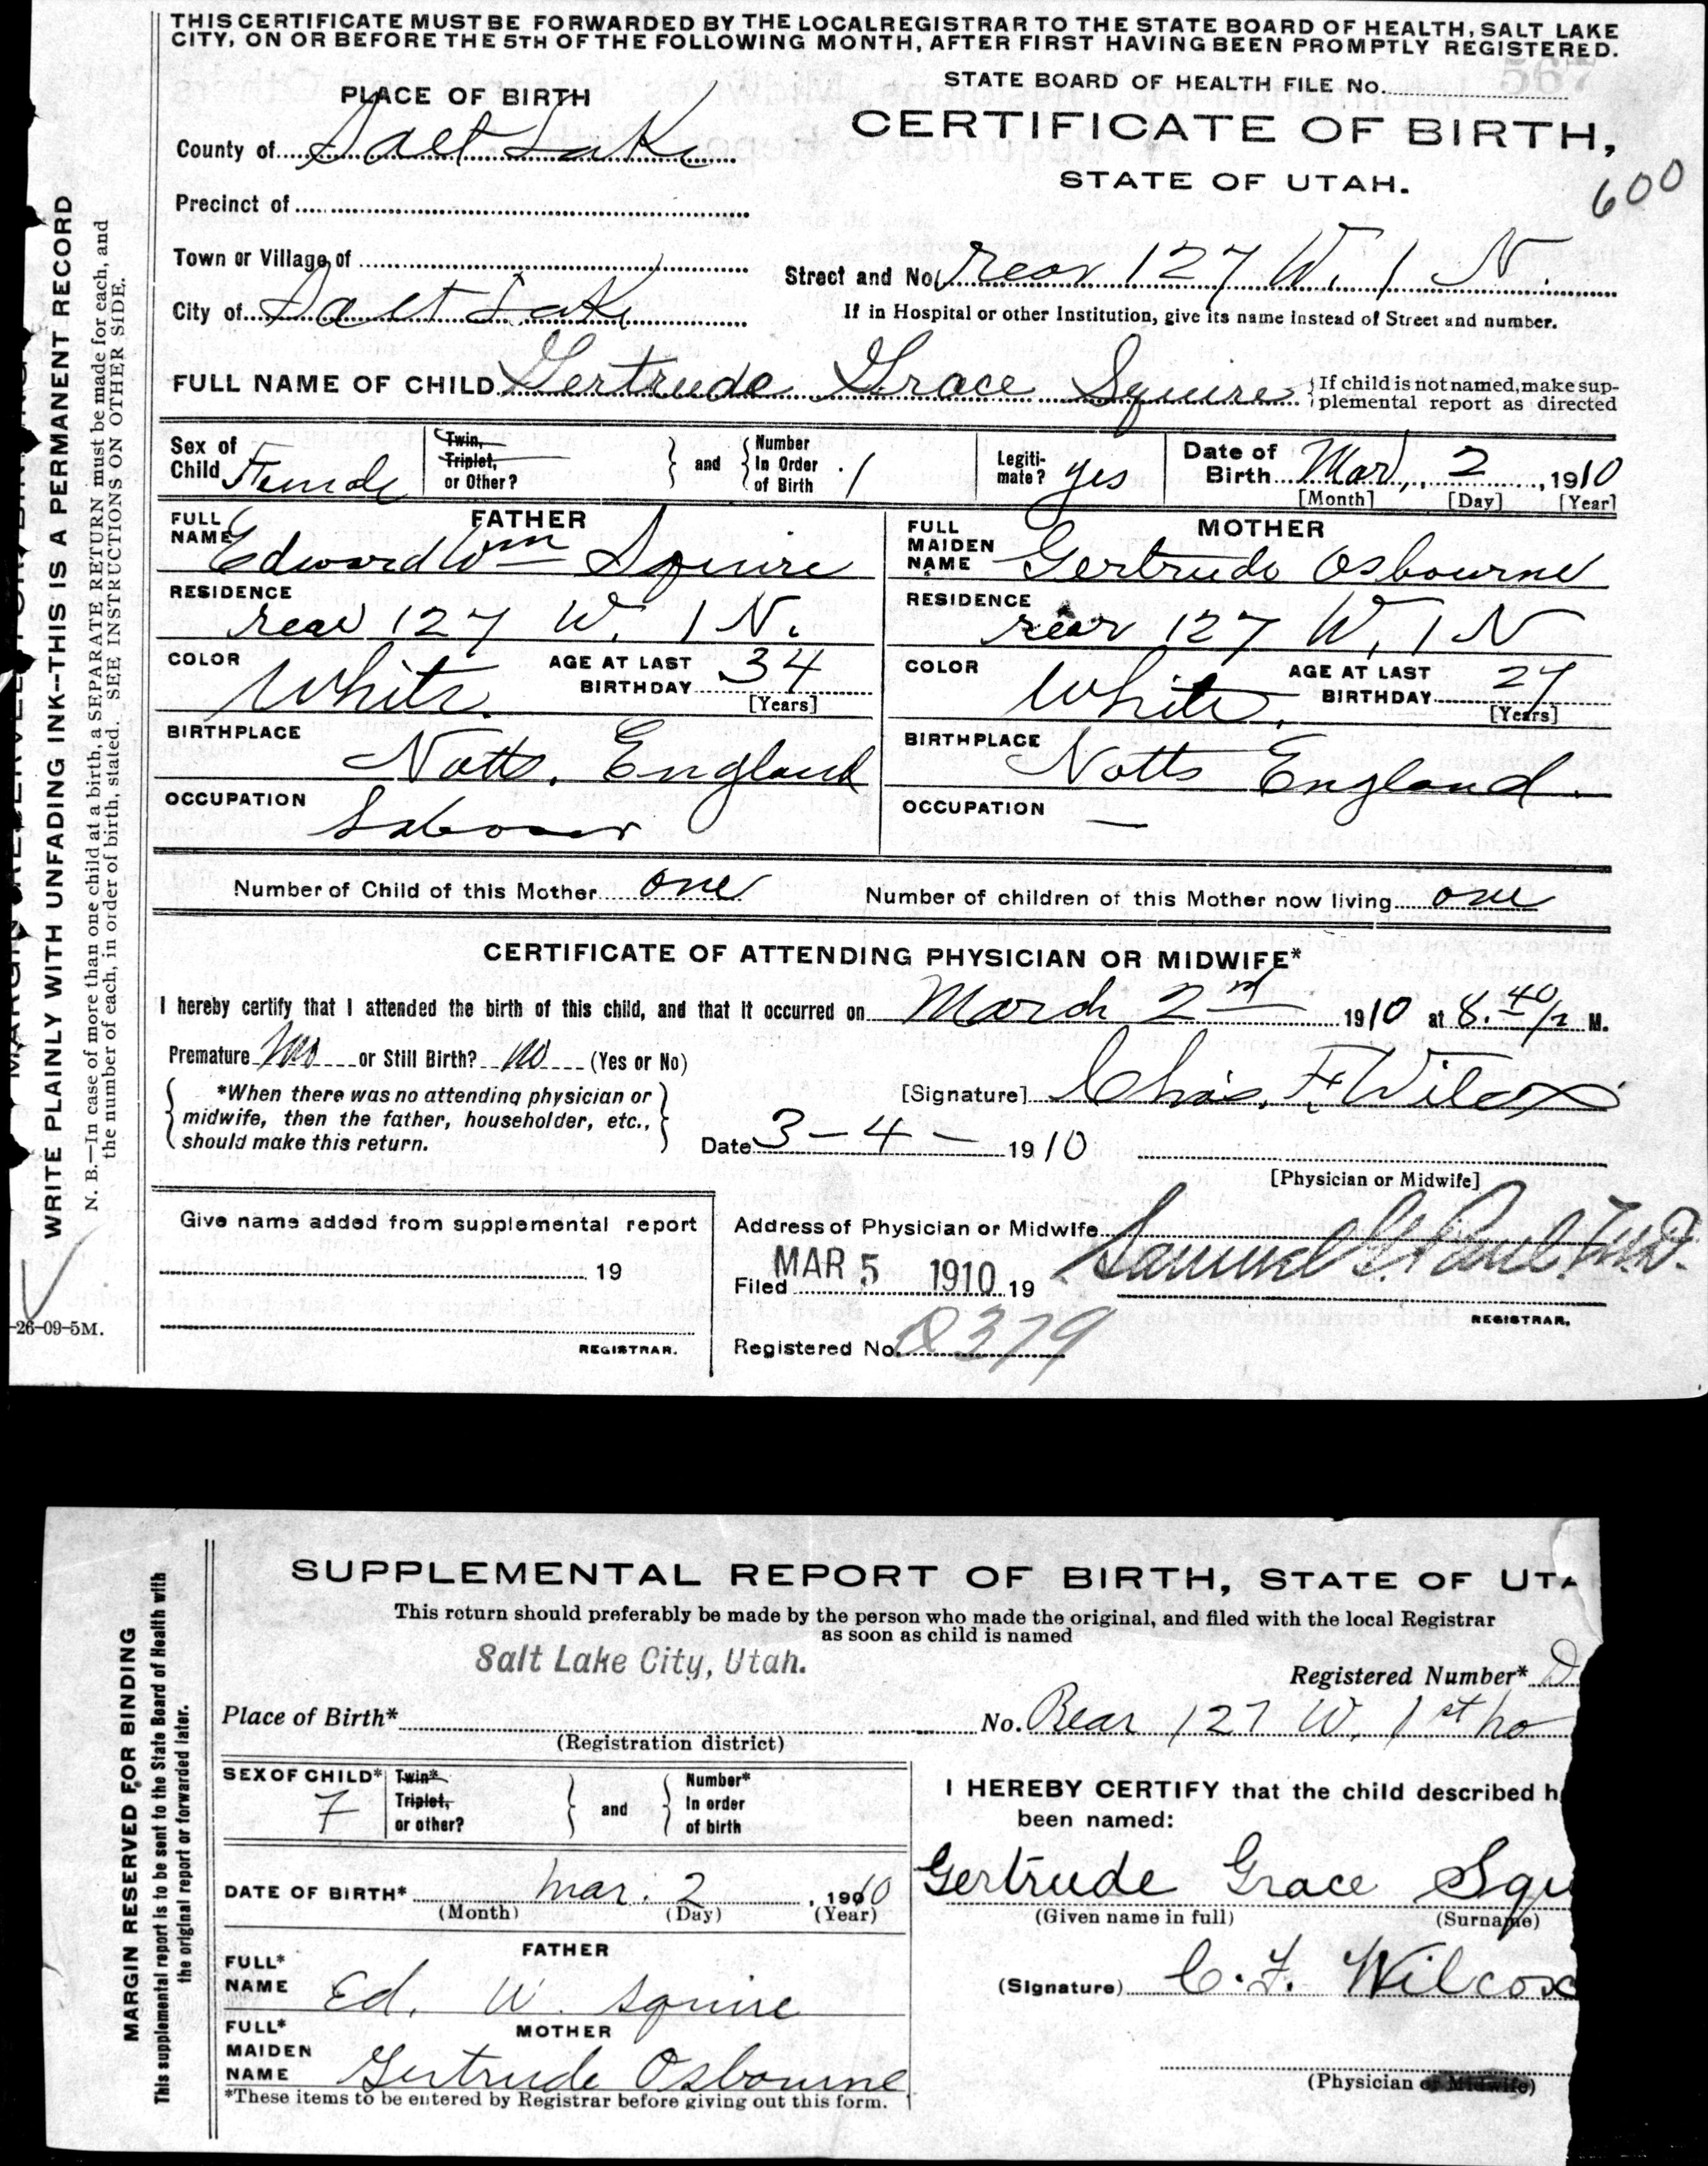 THIS CERTIFICATE MUST BE FORWARDED BY THE LOCAL REGISTRAR TO THE STATE BOARD OF HEALTH, SALT LAKE
CITY, ON OR BEFORE THE 5TH OF THE FOLLOWING MONTH, AFTER FIRST HAVING BEEN PROMPTLY REGISTERED.
STATE BOARD OF HEALTH FILE NO. 567
CERTIFICATE OF BIRTH,
STATE OF UTAH.
600
PLACE OF BIRTH
County of Salt Lake
Precinct of
Town or Village of
Street and No. rear 127 W. 1 N.
City of Salt Lake
If in Hospital or other Institution, give its name instead of Street and number.
FULL NAME OF CHILD Gertrude Grace Squire
If child is not named, make sup-
plemental report as directed
Sex of
Child Female
Twin,
Triplet,
or Other?
and
Number
In Order
of Birth 1
Legiti-
mate? yes
Date of
Birth Mar, 2, 1910
[Month] [Day] [Year]
FATHER
FULL
NAME Edward Wm Squire
RESIDENCE
rear 127 W. 1 N.
COLOR White
AGE AT LAST
BIRTHDAY 34
[Years]
BIRTHPLACE
Notts, England
OCCUPATION
Laborer
MOTHER
FULL
MAIDEN
NAME Gertrude Osbourne
RESIDENCE
rear 127 W. 1 N
COLOR White
AGE AT LAST
BIRTHDAY 27
[Years]
BIRTHPLACE
Notts England.
OCCUPATION —
Number of Child of this Mother one
Number of children of this Mother now living one
CERTIFICATE OF ATTENDING PHYSICIAN OR MIDWIFE*
I hereby certify that I attended the birth of this child, and that it occurred on March 2nd 1910 at 8.40 M.
Premature no or Still Birth? no (Yes or No)
*When there was no attending physician or
midwife, then the father, householder, etc.,
should make this return.
[Signature] Chas. F. Wilcox
Date 3-4- 1910
[Physician or Midwife]
Give name added from supplemental report
19
REGISTRAR.
Address of Physician or Midwife
Filed MAR 5 1910 19
Samuel G. Paul. M.D.
REGISTRAR.
Registered No. D379
WRITE PLAINLY WITH UNFADING INK--THIS IS A PERMANENT RECORD
N. B.—In case of more than one child at a birth, a SEPARATE RETURN must be made for each, and
the number of each, in order of birth, stated. SEE INSTRUCTIONS ON OTHER SIDE.
-26-09-5M.
SUPPLEMENTAL REPORT OF BIRTH, STATE OF UTA
This return should preferably be made by the person who made the original, and filed with the local Registrar
as soon as child is named
Salt Lake City, Utah.
Registered Number* D
Place of Birth*
No. Rear 127 W. 1st no
(Registration district)
SEX OF CHILD*
F
Twin*
Triplet,
or other?
and
Number*
In order
of birth
DATE OF BIRTH* Mar. 2, 1910
(Month) (Day) (Year)
FATHER
FULL*
NAME Ed. W. Squire
MOTHER
FULL*
MAIDEN
NAME Gertrude Osbourne
*These items to be entered by Registrar before giving out this form.
I HEREBY CERTIFY that the child described h
been named:
Gertrude Grace Squ
(Given name in full) (Surname)
(Signature) C. F. Wilcox
(Physician or Midwife)
MARGIN RESERVED FOR BINDING
This supplemental report is to be sent to the State Board of Health with
the original report or forwarded later.